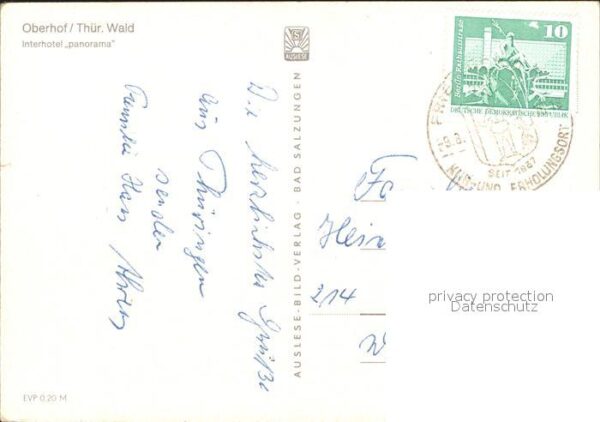 Oberhof / Thür. Wald
Interhotel „panorama"
AUSLESE
Die herzlichsten Grüße
aus Thüringen
senden
Familie Hans
AUSLESE-BILD-VERLAG · BAD SALZUNGEN
10
Berlin, Rathausstraße
DEUTSCHE DEMOKRATISCHE REPUBLIK
FRIE
SEIT 1837
KUR-UND ERHOLUNGSORT
Fa
Hein
214
W
privacy protection
Datenschutz
EVP 0.20 M